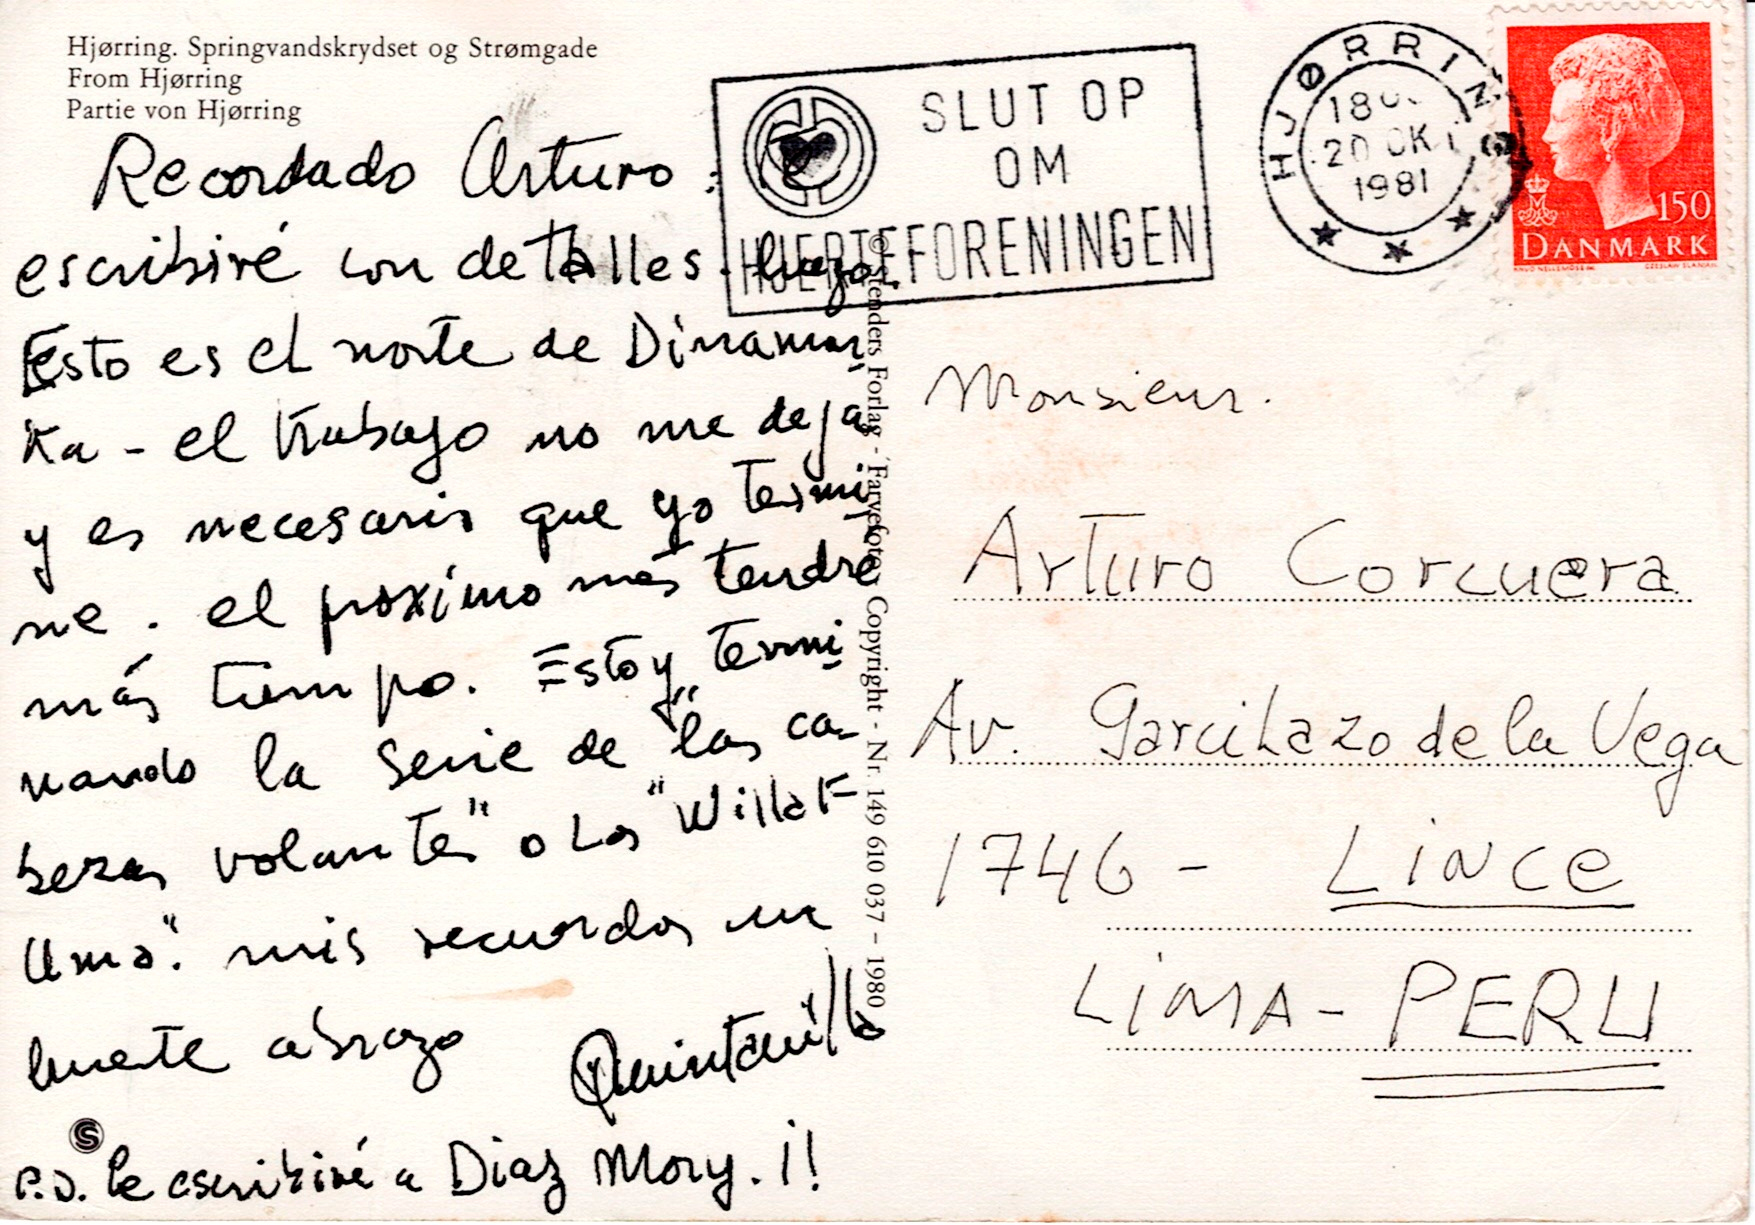 Hjørring. Springvandskrydset og Strømgade
From Hjørring
Partie von Hjørring
Recordado Arturo: te
escribiré con detalles luego.
Esto es el norte de Dinamar
Ka - el trabajo no me deja
y es necesario que yo termi
ne. el proximo mes tendré
más tiempo. Estoy termi
nando la serie de "las ca-
bezas volantes" o Los "Willak
Umo". mis recuerdos un
fuerte abrazo Quintanilla
P.D. le escribiré a Diaz Mory. ¡!
S
© Stenders Forlag - Farvefoto. Copyright - Nr. 149 610 037 - 1980
SLUT OP
OM
HJERTEFORENINGEN
HJØRRING
20 OKT
1981
150
DANMARK
Monsieur.
Arturo Corcuera
Av. Garcilazo de la Vega
1746 - Lince
LIMA - PERU